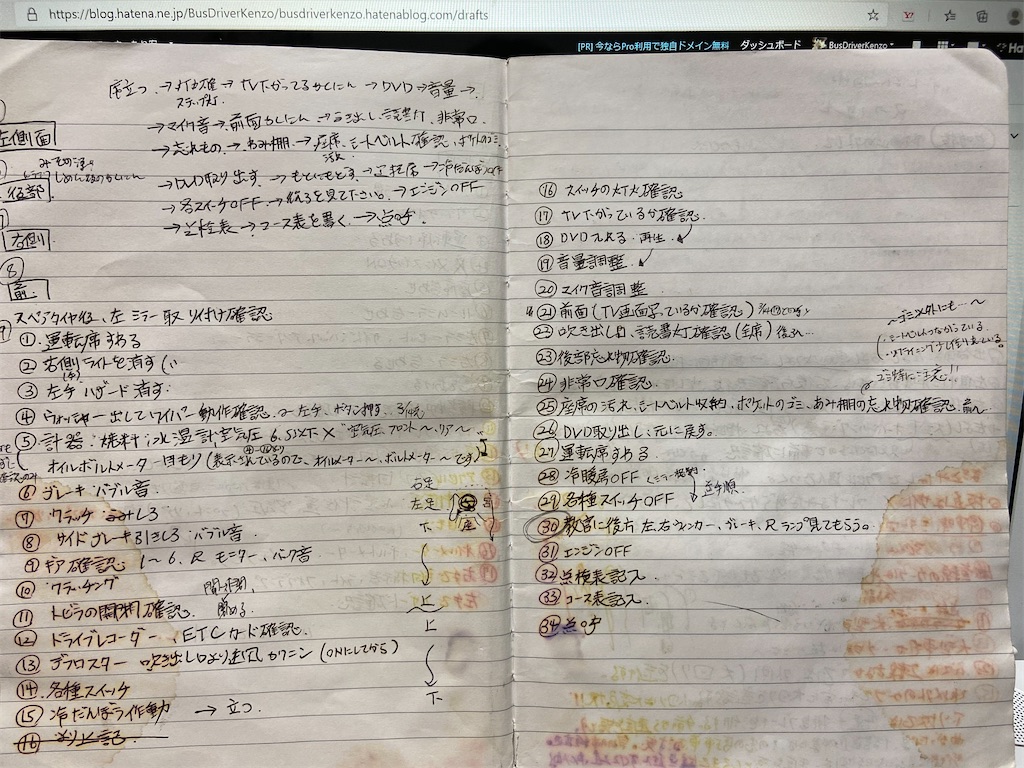 https://blog.hatena.ne.jp/BusDriverKenzo/busdriverkenzo.hatenablog.com/drafts
[PR] 今ならPro利用で独自ドメイン無料 ダッシュボード BusDriverKenzo
席立つ → 灯火確 → TVエがってるかくにん → DVD → 音量 →
→ マイク音 → 前面かくにん → 吹き出し、読書灯、非常口
→ 忘れもの → あみ棚 → 座席、シートベルト確認、ポケットのゴミ
→ DVD取り出す → もとにもどす → 運転席 → 冷だんぼうOFF
→ 各スイッチOFF → 後ろを見て下さい。 → エンジンOFF
→ 点検表 → コース表を書く → 点呼
左側面
後部
右側
⑧
前
スペアタイヤ、左ミラー取り付け確認
① 運転席すわる
② 右側ライトを消す
③ 左手ハザード消す
④ ウォッシャー出してワイパー動作確認
⑤ 計器、燃料、水温計、空気圧 6.5以下× "空気圧、フロント〜、リアー〜
オイルボルトメーター目もり (表示されているので、オイルメーター〜、ボルトメーター〜です)
⑥ ブレーキバブル音
⑦ クラッチふみしろ
⑧ サイドブレーキ引きしろ バブル音
⑨ ギア確認 1〜6、R モニター、バック音
⑩ クラッチング
⑪ トビラの開閉確認 開閉、閉める
⑫ ドライブレコーダー、ETCカード確認
⑬ デフロスター 吹き出し口より送風カクニン (ONにしてから)
⑭ 各種スイッチ
⑮ 冷だんぼう作動 → 立つ
右足
左足
下
上
上
下
⑯ スイッチの灯火確認
⑰ TVエがっているか確認
⑱ DVD入れる、再生
⑲ 音量調整
⑳ マイク音調整
㉑ 前面 (TV画面写っているか確認)
㉒ 吹き出し口、読書灯確認 (全席) 後へ
㉓ 後部忘れ物確認
㉔ 非常口確認
㉕ 座席の汚れ、シートベルト収納、ポケットのゴミ、あみ棚の忘れ物確認 前へ
㉖ DVD取り出し、元に戻す。
㉗ 運転席すわる
㉘ 冷暖房OFF
㉙ 各種スイッチOFF
㉚ 教官に後方 左右ウィンカー、ブレーキ、Rランプ見てもらう。
㉛ エンジンOFF
㉜ 点検表記入
㉝ コース表記入
㉞ 点呼
〜ゴミ以外にも…〜
シートベルトつながっている
リクライニング少し作り出ている
ゴミ特に注意!!